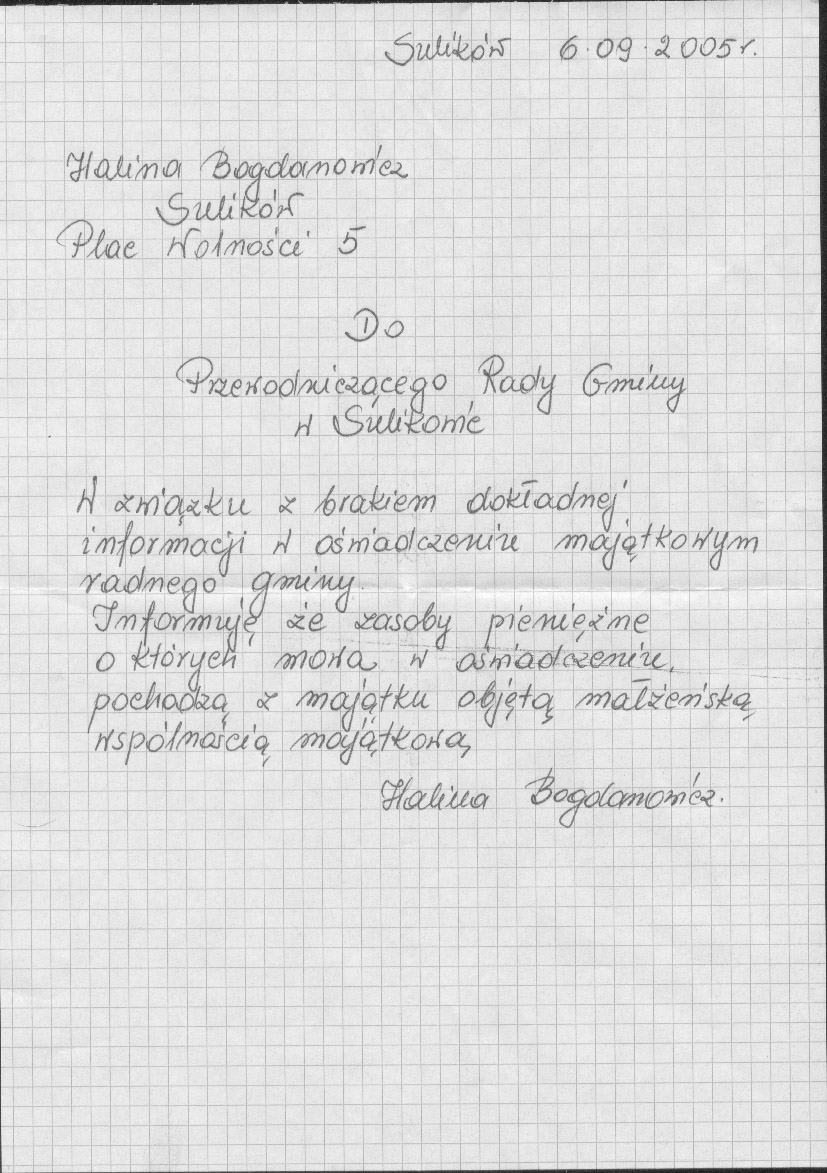 Sulików 6.09.2005r.
Halina Bogdanowicz
Sulików
Plac Wolności 5
Do
Przewodniczącego Rady Gminy
w Sulikowie
W związku z brakiem dokładnej
informacji w oświadczeniu majątkowym
radnego gminy.
Informuję że zasoby pieniężne
o których mowa w oświadczeniu,
pochodzą z majątku objętą małżeńską
wspólnością majątkową
Halina Bogdanowicz.